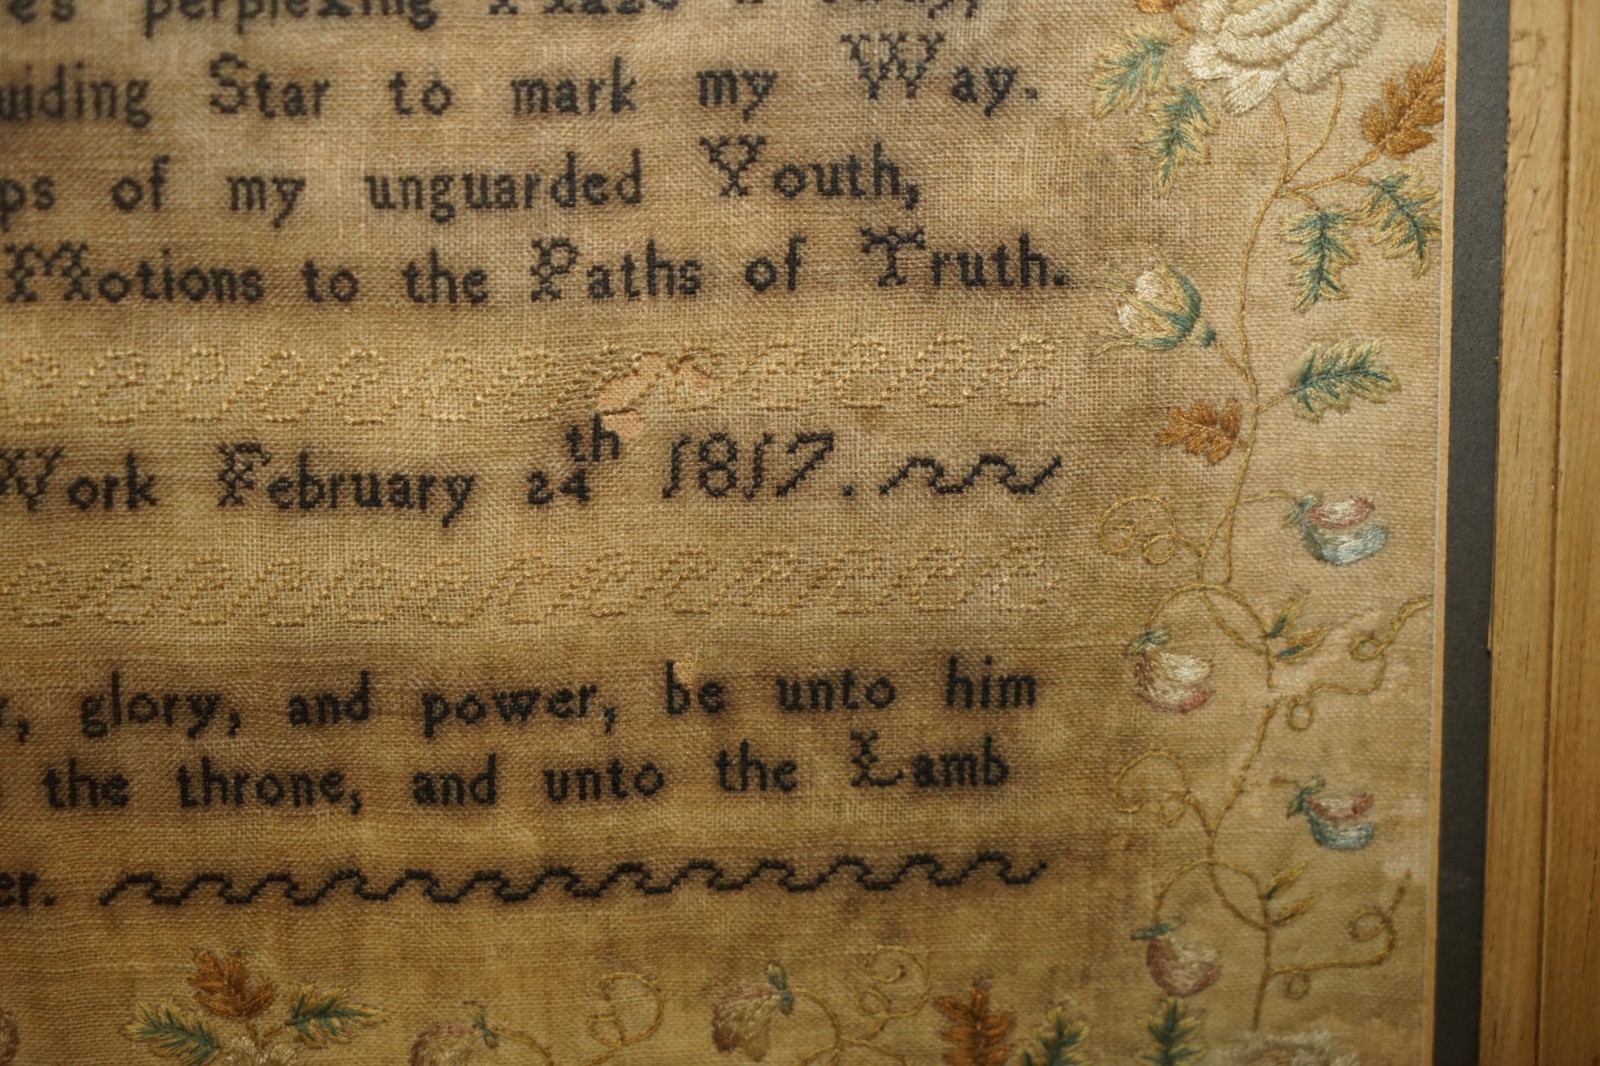 perplexing Maze
uiding Star to mark my Way.
ps of my unguarded Youth,
Motions to the Paths of Truth.
Work February 24th 1817.
r, glory, and power, be unto him
the throne, and unto the Lamb
er.